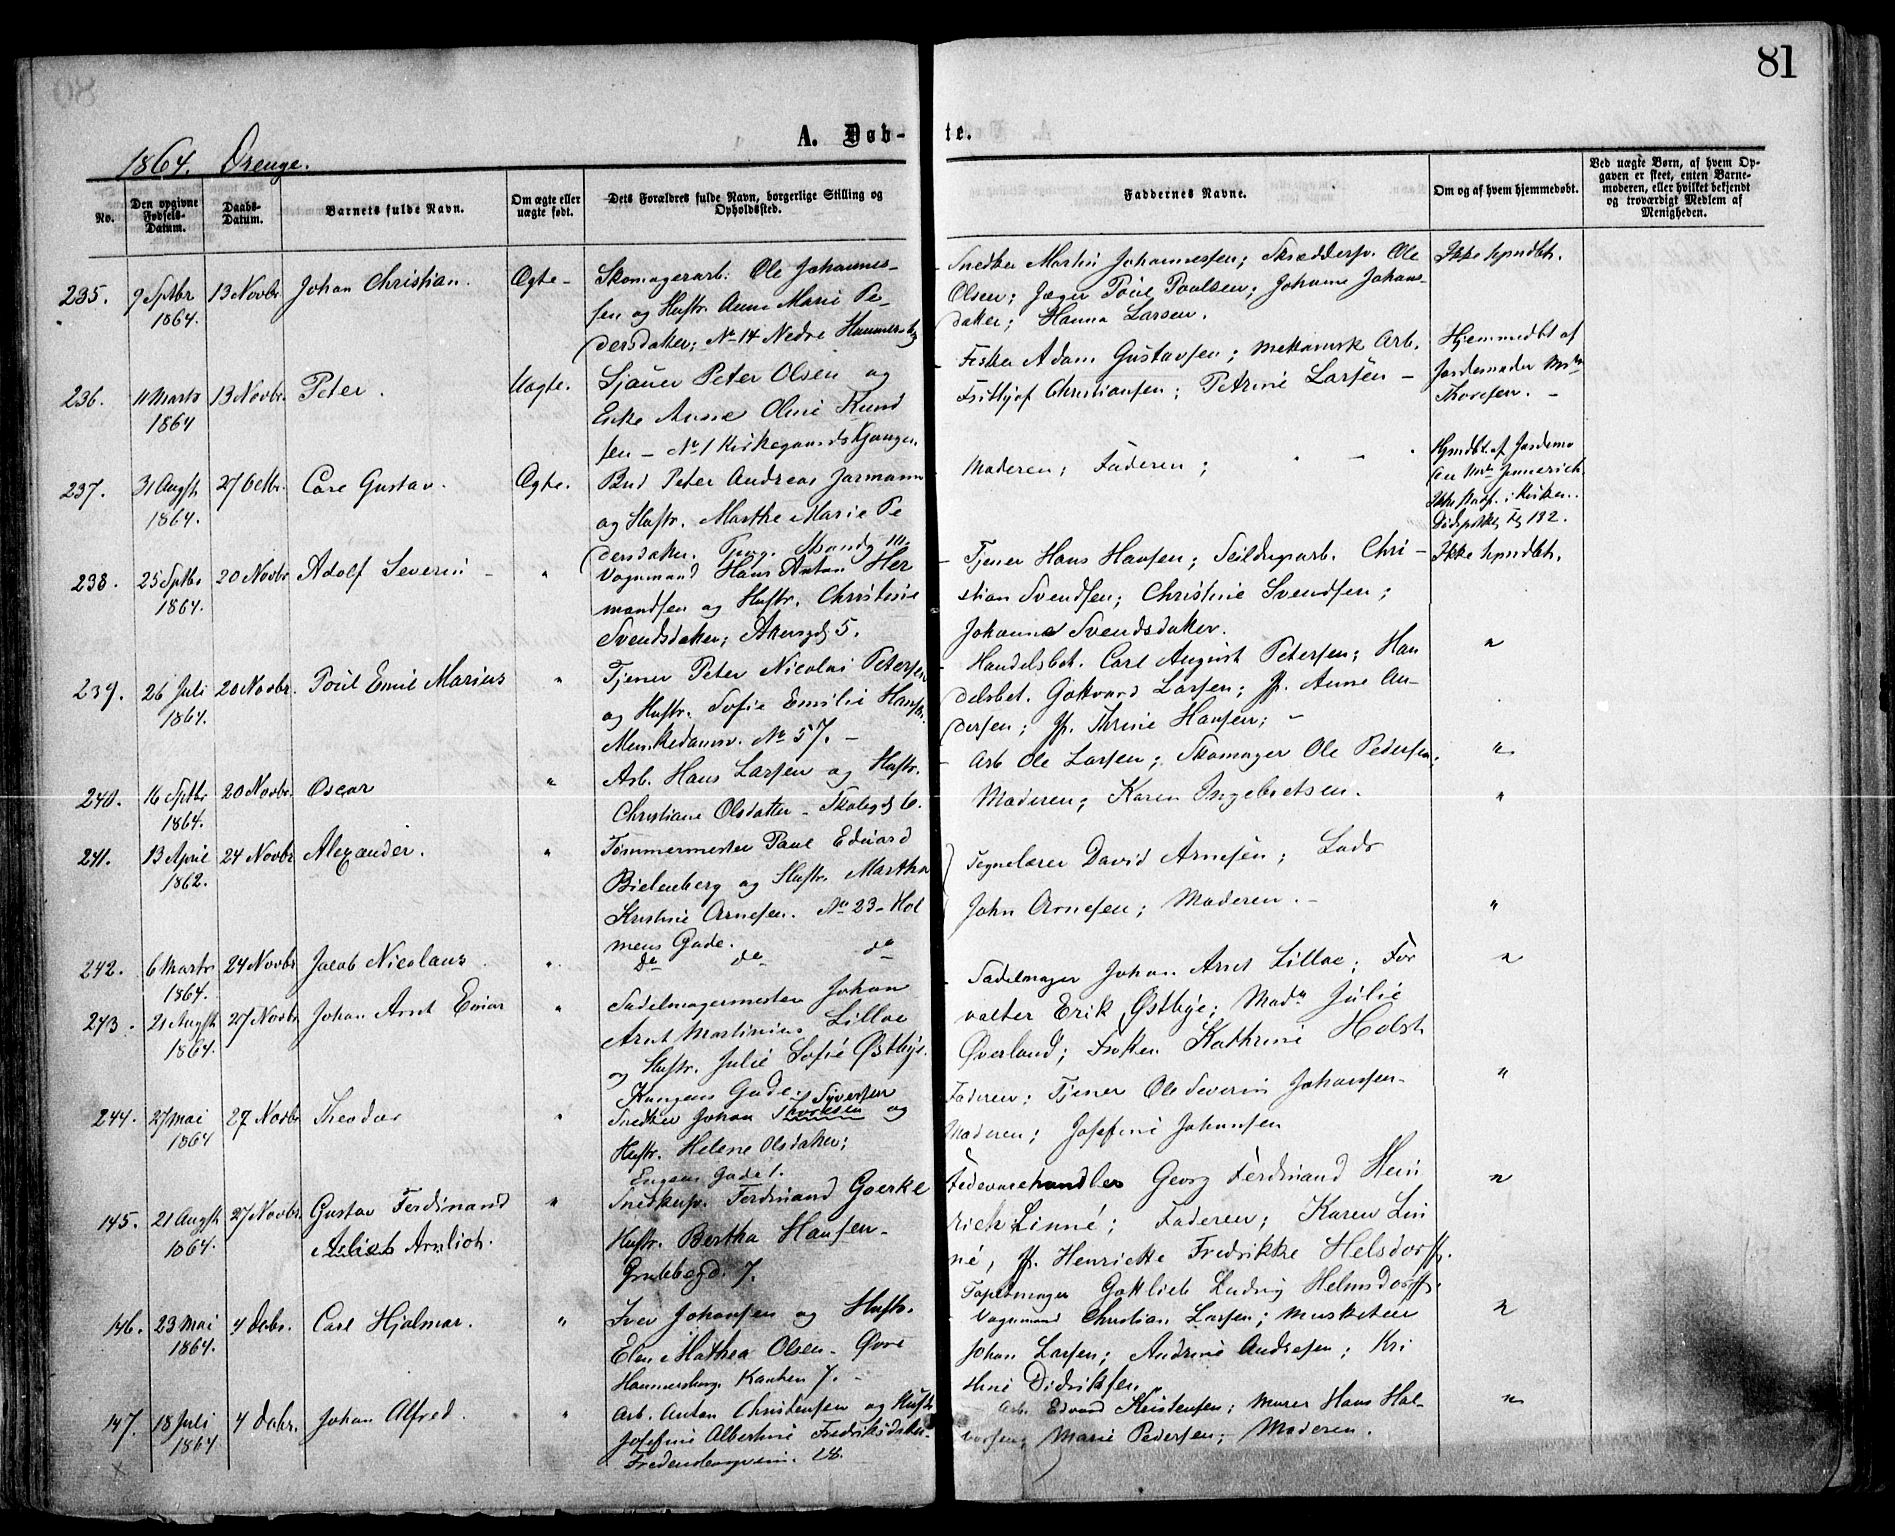 81
A. Døb-te.
1864. Drenge.
No.
Den opgivne Fødsels-Datum.
Daabs-Datum.
Barnets fulde Navn.
Om ægte eller uægte født.
Dets Forældres fulde Navn, borgerlige Stilling og Opholdssted.
Faddernes Navne.
Om og af hvem hjemmedøbt.
Ved uægte Børn, af hvem Opgaven er skeet, enten Barnemoderen, eller hvilket bekjendt og troværdigt Medlem af Menigheden.
235. 9 Septbr 1864. 13 Novbr Johan Christian. Ægte-
Skomagerarb. Ole Johannes-
sen og Hustr. Anne Marie Pe-
dersdatter; No 14 Nedre Hammersbg
Snedker Martin Johannessen; Skrædersv. Ole
Olsen; Jæger Poul Poulsen; Johanne Johans-
datter; Hanna Larsen.
Ikke hjmdbt.
236. 11 Marts 1864 13 Novbr. Peter. Uægte.
Sjouer Peter Olsen og
Enke Anne Oline Knud
sen - No 1 Kirkegaards
Fisker Adam Gustavsen; mekanisk Arb.
Frithjof Christiansen; Petrine Larsen -
Hjemmedbt af
Jordemoder
Thoresen. -
237. 31 Augst 1864. 27 Octbr. Carl Gustav. Ægte.
Bud Peter Andreas Jarmann
og Hustr. Marthe Marie Pe
dersdatter.
Moderen; Faderen;
Hjmdbt. af Jordemo
i Kirken.
132.
238. 25 Septbr 1864. 20 Novbr Adolf Severin - "
Vognmand Hans Anton Her
mandsen og Hustr. Christine
Svendsdatter; Akersgd 5.
Tjener Hans Hansen; Seildugsarb. Chri-
stian Svendsen; Christine Svendsen;
Johanne Svendsdatter.
Ikke hjmdbt.
239. 26 Juli 1864. 20 Novbr. Poul Emil Marius "
Tjener Peter Nicolai Petersen
og Hustr. Sofie Emilie Hansen.
Munkedamsv. No 57. -
Handelsbet. Carl August Petersen; Han
delsbet. Gottvard Larsen; Jfr. Anne An-
dersen; Jfr. Thrine Hansen; -
"
240. 16 Septbr 1864. 20 Novbr. Oscar "
Arb. Hans Larsen og Hustr.
Christiane Olsdatter -
Arb Ole Larsen; Skomager Ole Pedersen;
Moderen; Karen Ingebretsen.
"
241. 13 April 1862. 24 Novbr Alexander. "
Tømmermester Paul Eduard
Bielenberg og Hustr. Martha
Kristine Arnesen. No 23 - Hol
mens Gade.
Tegnelærer David Arnesen;
John Arnesen; Moderen. -
"
242. 6 Marts 1864. 24 Novbr Jacob Nicolaus. "
do do do
"
243. 21 Augst 1864. 27 Novbr. Johan Arnt Einar "
Sadelmagermester Johan
Arnt Martinius Lilloe
og Hustr. Julie Sofie Østbye.
Kongens Gade.
Sadelmager Johan Arnt Lilloe; For
valter Erik Østbye; Madm Julie
Øverland; Frøken Kathrine Holst
"
244. 27 Mai 1864 27 Novbr Theodor "
Snedker Johan Syversen og
Hustr. Helene Olsdatter;
Engens Gade 1.
Faderen; Tjener Ole Severin Johansen.
Moderen; Josefine Johansen
"
145. 21 Augst 1864. 27 Novbr. Gustav Ferdinand Arnliot. "
Snedkersv. Ferdinand Goerke
Hustr. Bertha Hansen-
Grubbegd. 7.
Fedevarehandler Georg Ferdinand Hein
rich Linné; Faderen; Karen Lin
né, Jfr. Henriette Fredrikke Helsdorff.
Tapetmager Gottlieb Ludvig Helmsdorff.
"
146. 23 Mai 1864. 4 Decbr. Carl Hjalmar. "
Iver Johansen og Hustr.
Elen Mathea Olsen - Øvre
Hammersborg. Kanten 7. -
Vognmand Christian Larsen; Musketeer
Johan Larsen; Andrine Andresen; Kri
stine Didriksen
"
147. 18 Juli 1864 4 Decbr. Johan Alfred. "
Arb. Anton Christensen og Hustr
Josefine Albertine Fredriksdatter-
28.
Arb. Edvard Kristensen; Murer Hans Hal-
vorsen; Marie Pedersen; Moderen.
"